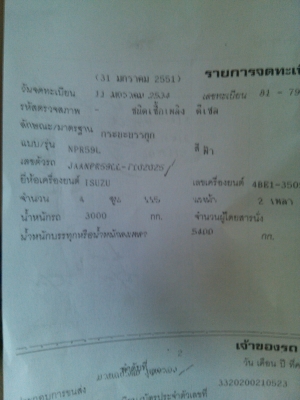 (31 มกราคม 2551)
รายการจดทะเ
วันจดทะเบียน 11 มกราคม 2534 เลขทะเบียน 81 - 79
รหัสตรวจสภาพ - ชนิดเชื้อเพลิง ดีเซล
ลักษณะ/มาตรฐาน กระบะบรรทุก
แบบ/รุ่น NPR59L สี ฟ้า
เลขตัวรถ
ยี่ห้อเครื่องยนต์ ISUZU เลขเครื่องยนต์ 4BE1-350
จำนวน 4 สูบ 2 เพลา
น้ำหนักรถ 3000 กก. จำนวนผู้โดยสารนั่ง
น้ำหนักบรรทุกหรือน้ำหนักลงเพลา 5400 กก.
เจ้าของรถ
ลำดับที่ วัน เดือน ปี ที่
3320200210523
กอบการขนส่ง